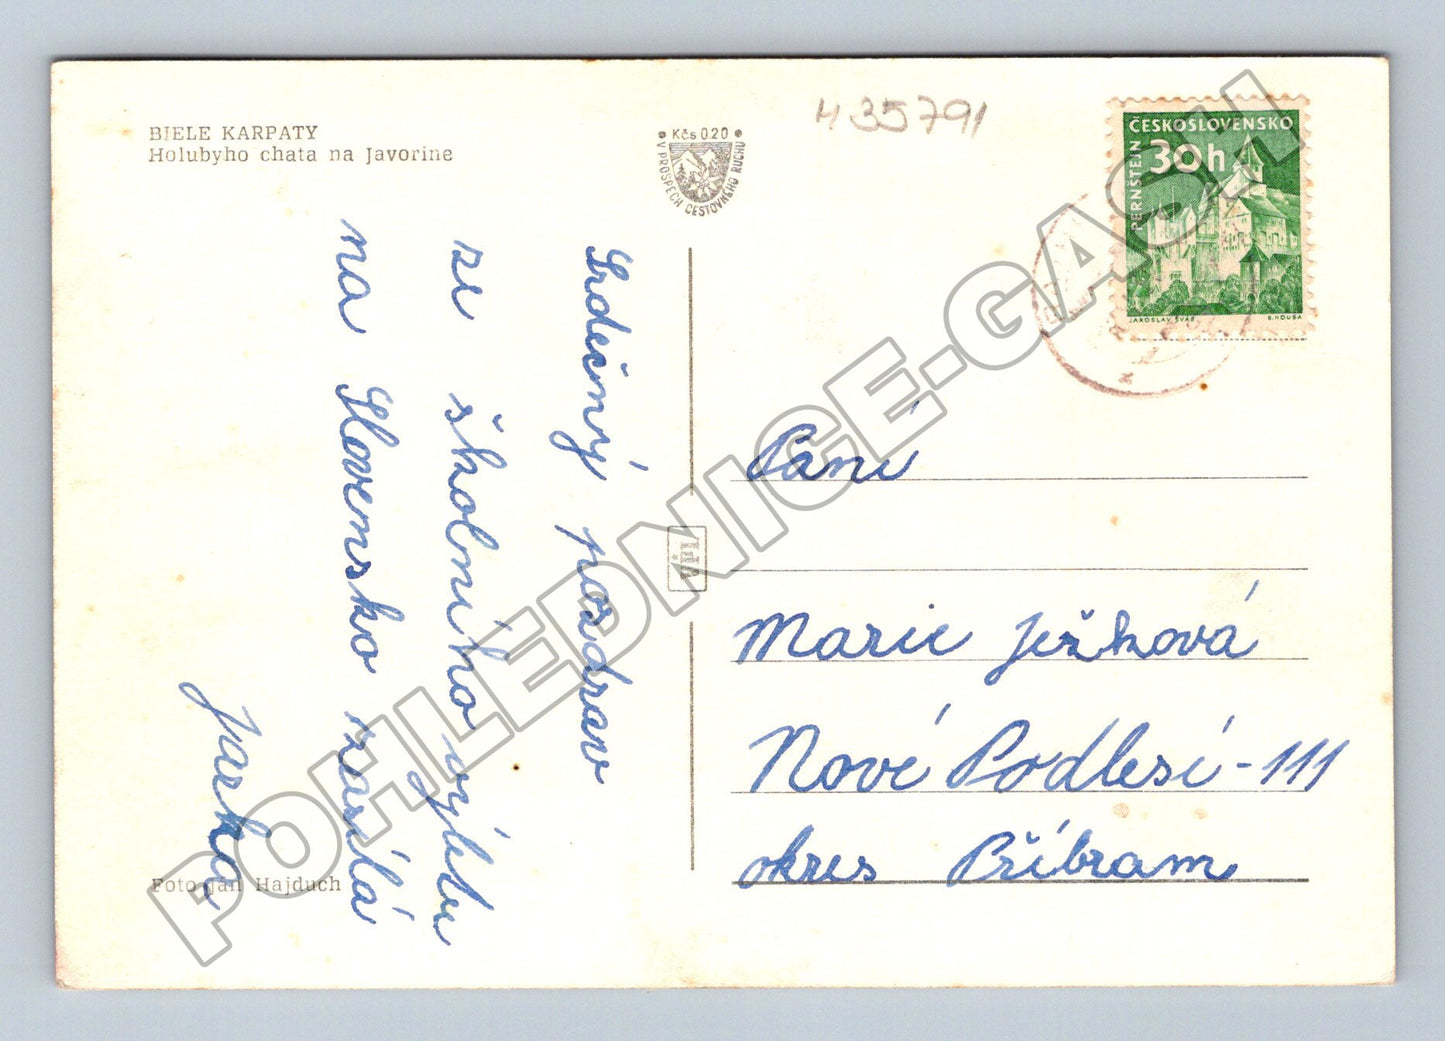 BIELE KARPATY
Holubyho chata na Javorine
Kčs 0.20
V PROSPECH CESTOVNÉHO RUCHU
435791
ČESKOSLOVENSKO
30h
PERNŠTEJN
JAROSLAV ŠVÁB
B. HOUSA
Srdečný pozdrav
ze školního výletu
na Slovensko zasílá
Jarka
Paní
Marie Ježková
Nové Podlesí-111
okres Příbram
Foto Ján Hajduch
POHLEDNICE-GASH